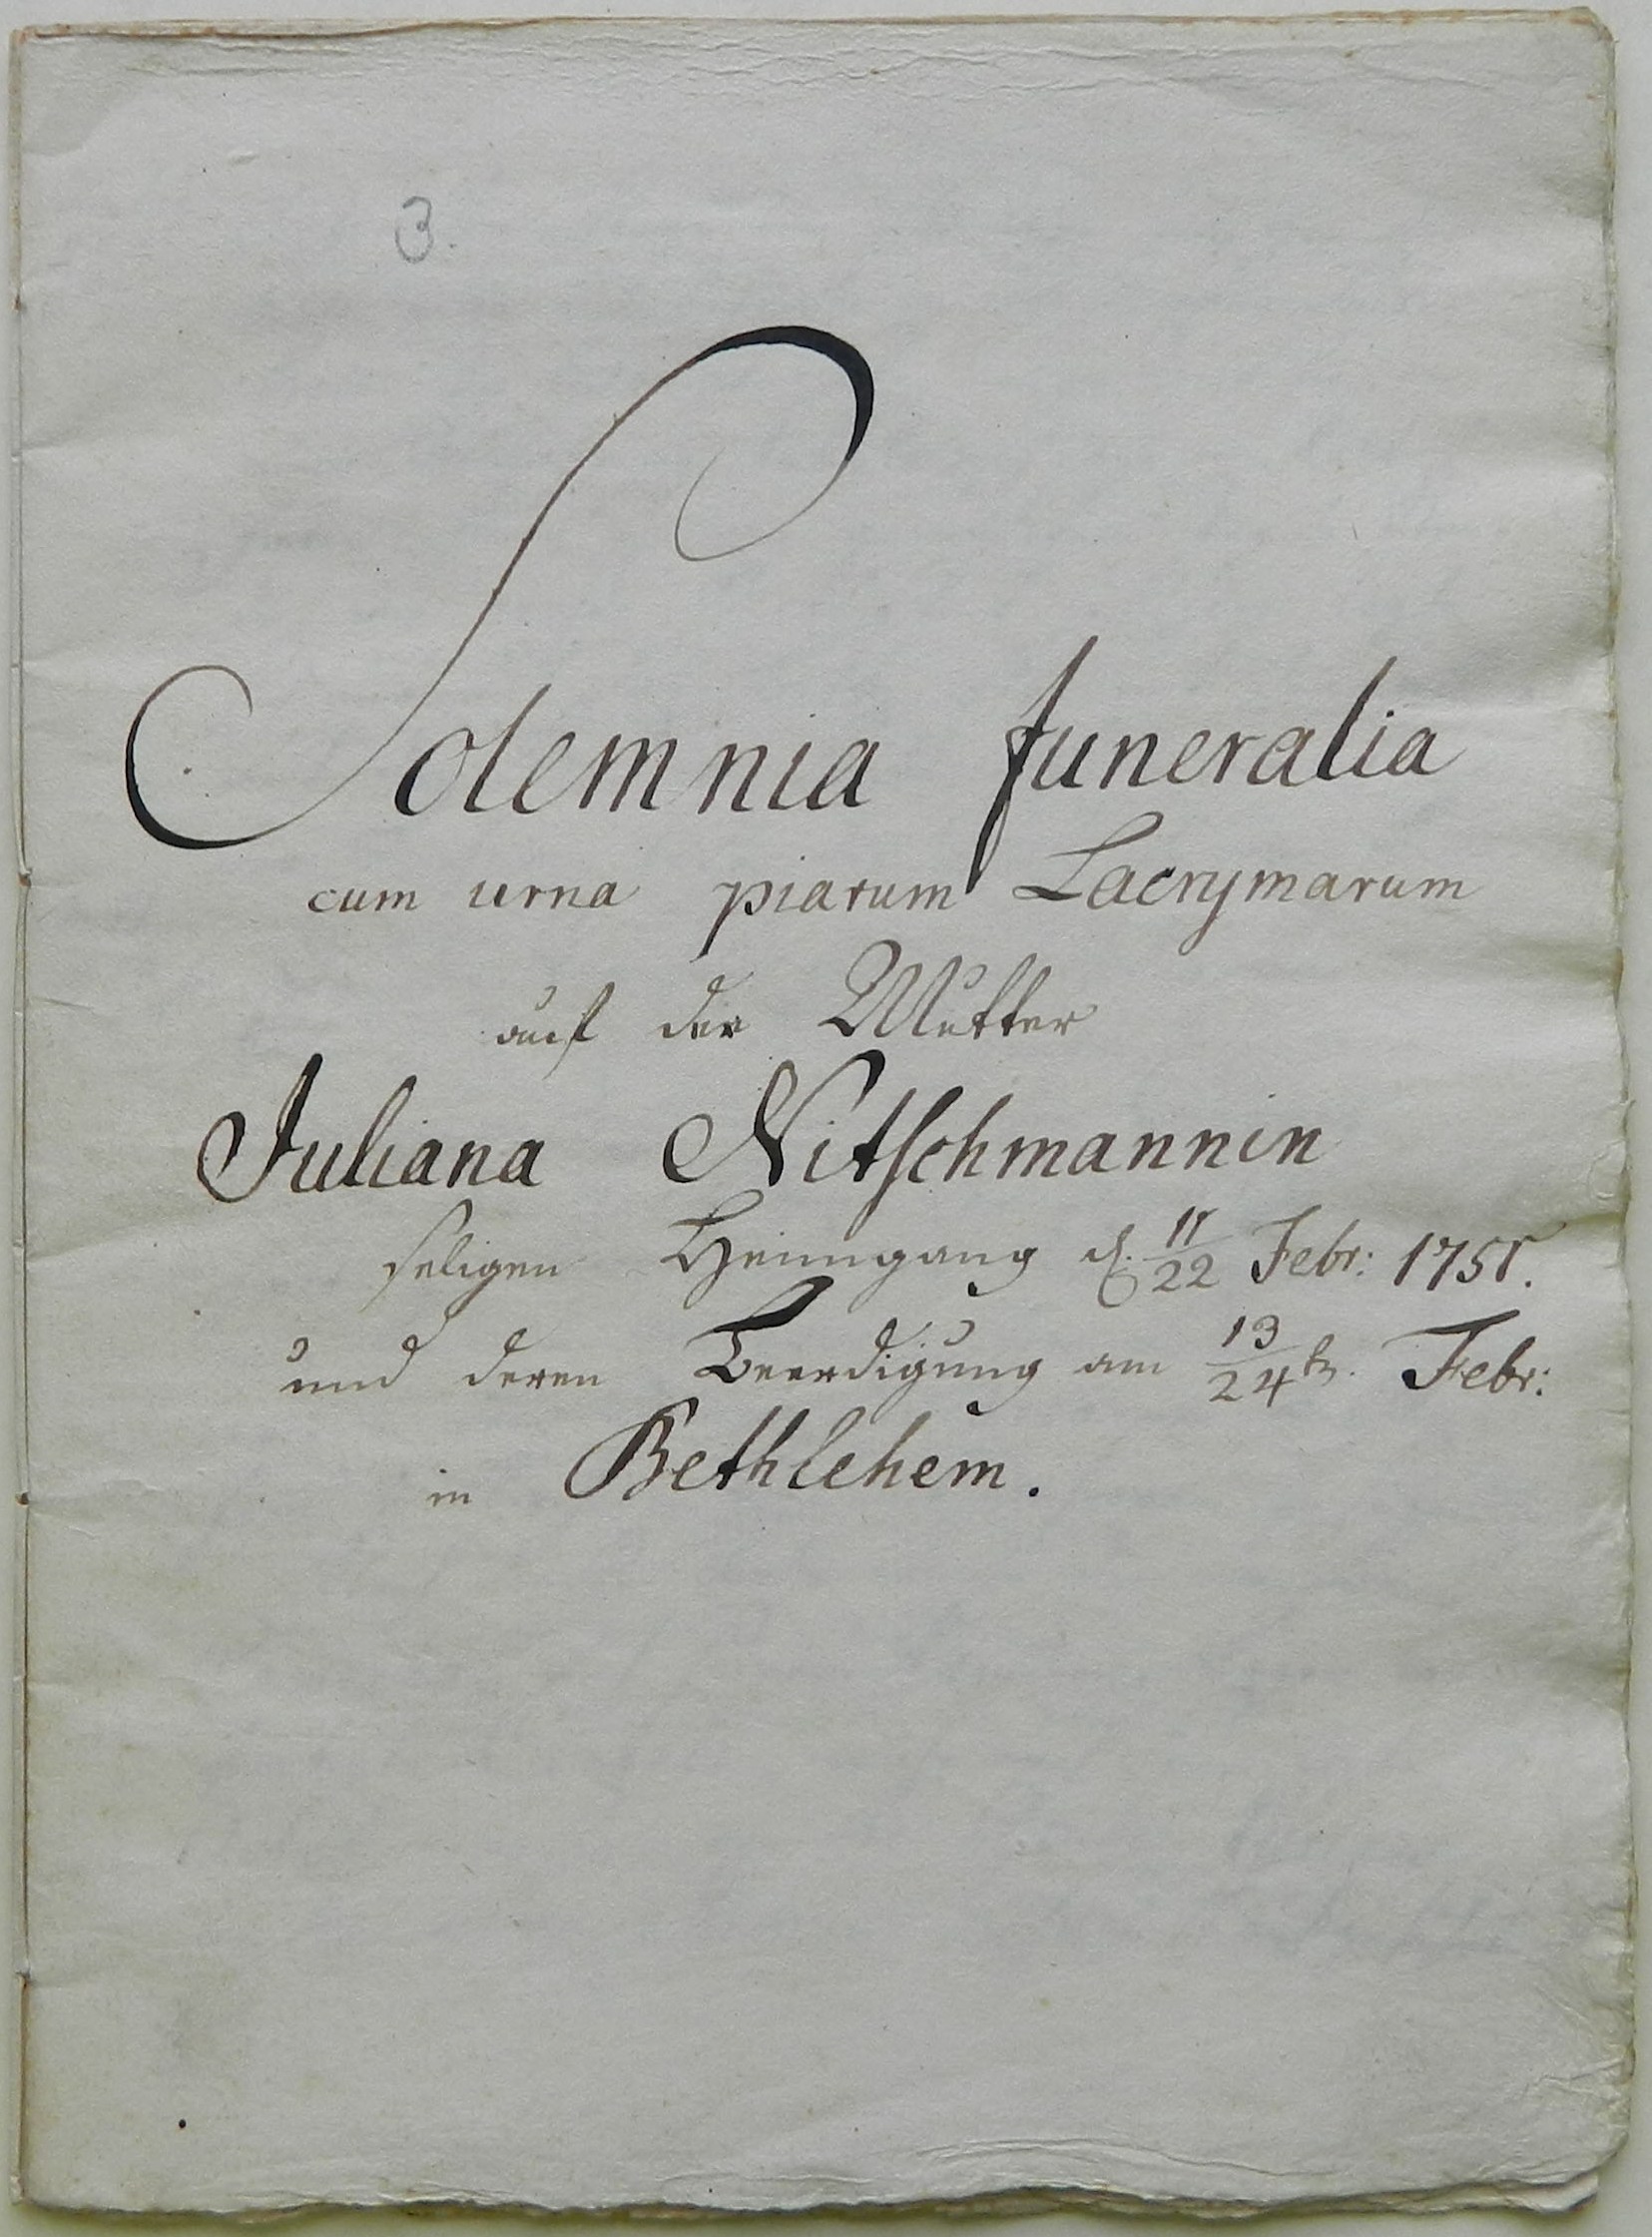 3.
Solemnia funeralia
cum urna piarum Lacrymarum
auf der Mutter
Juliana Nitschmannin
seligen Heimgang d. 11/22 Febr: 1751.
und deren Beerdigung am 13/24 t. Febr:
in Bethlehem.